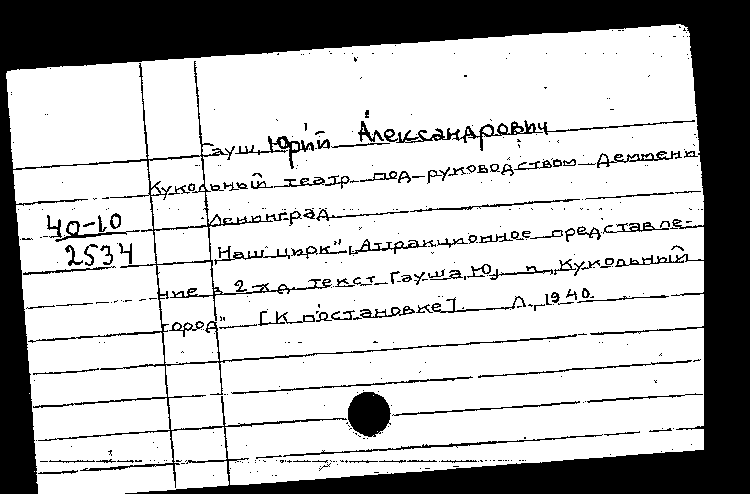 Гауш, Юрий Александрович
Кукольный театр под руководством Деммени
40-10
Ленинград
2534
„Наш цирк", „Аттракционное представле-
ние в 2-х д. текст Гауша, Ю, и „Кукольный
город" [К постановке] Л., 1940.